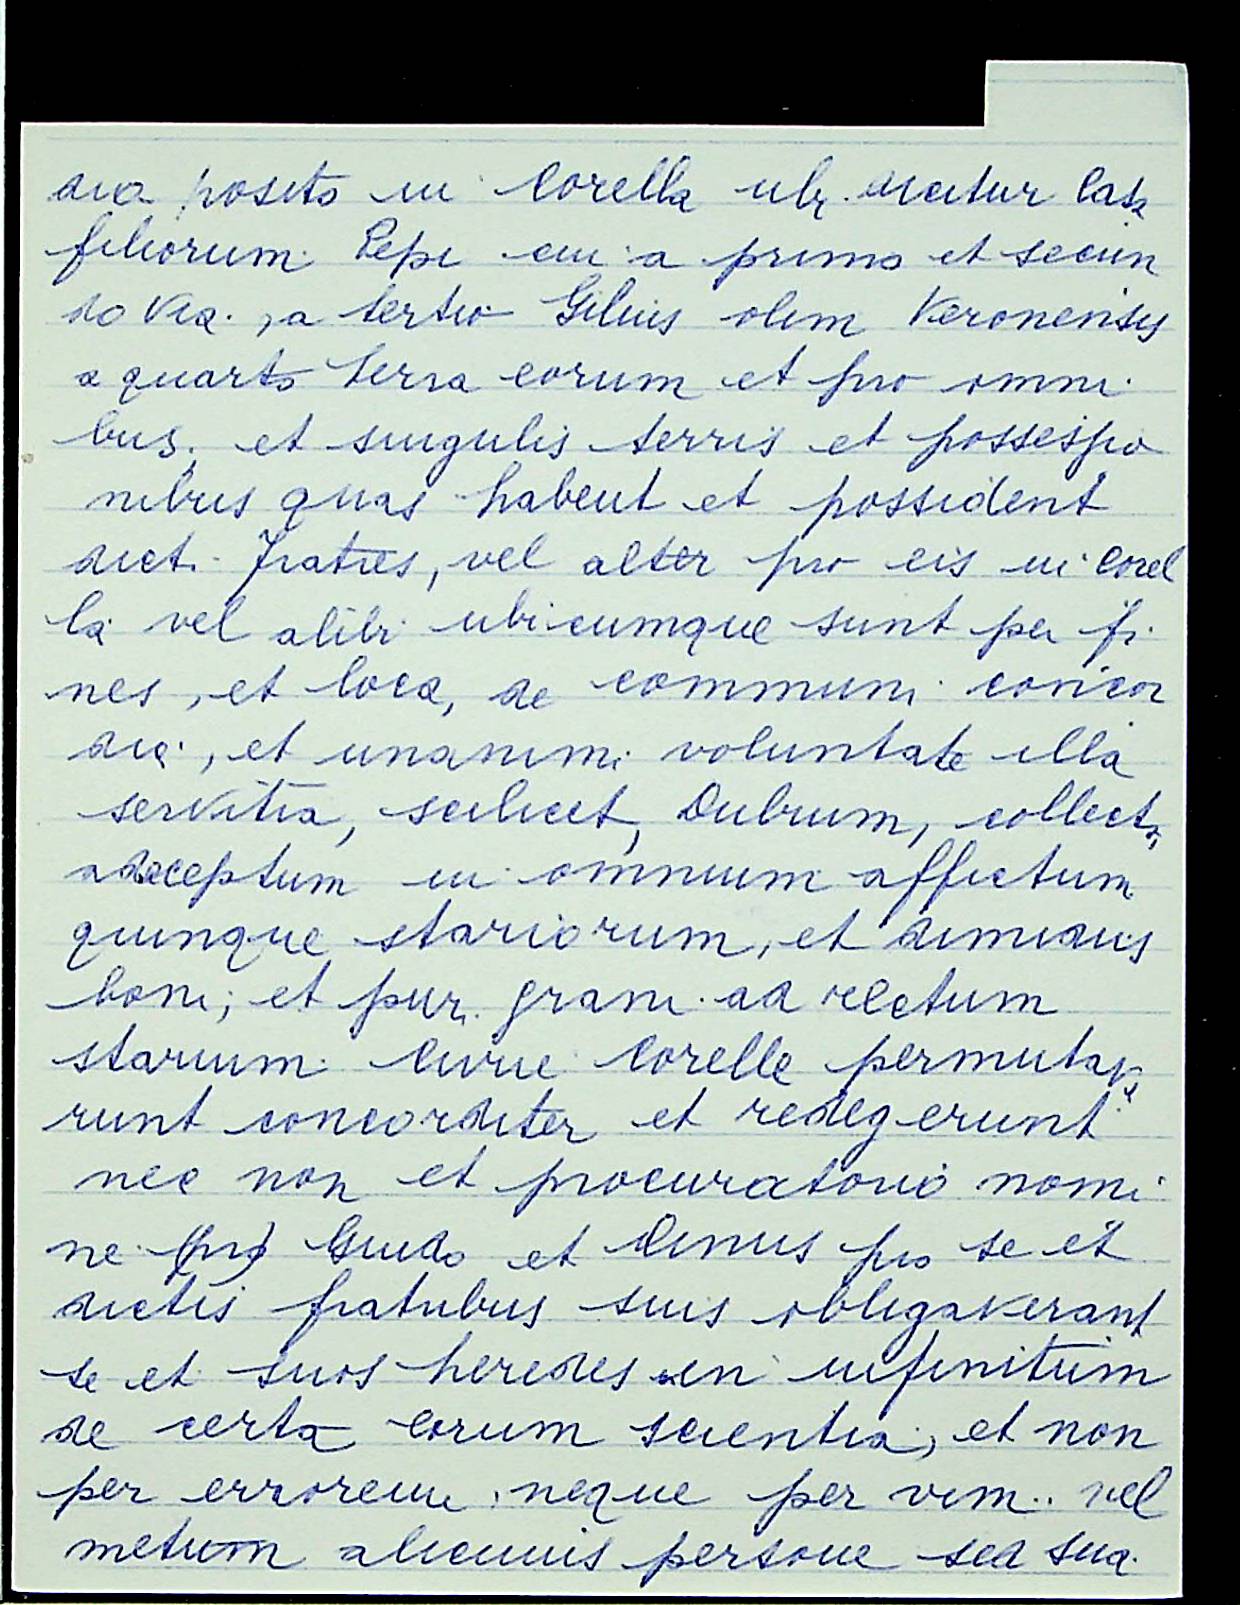 dia posito in Corella ubi dicitur Casa
filiorum Pepi cui a primo et secun
do via, a tertio Gilius olim Veronensis
a quarto terra eorum et pro omni
bus et singulis terris et possessio
nibus quas habent et possident
dicti fratres, vel alter pro eis in Corel
la vel alibi ubicumque sunt per fi
nes, et loca, de communi concor
dia, et unanimi voluntate illa
servitia, scilicet, Dubium, collecta,
adceptum in omnium affictum
quinque stariorum, et dimidius
boni; et puri grani ad rectum
starium Curie Corelle permutave
runt concorditer et redegerunt
nec non et procuratorio nomi
ne (pro) Guido et Dinus pro se et
dictis fratribus suis obligaverant
se et suos heredes in infinitum
de certa eorum scientia, et non
per errorem, neque per vim vel
metum alicuius persone sed sua